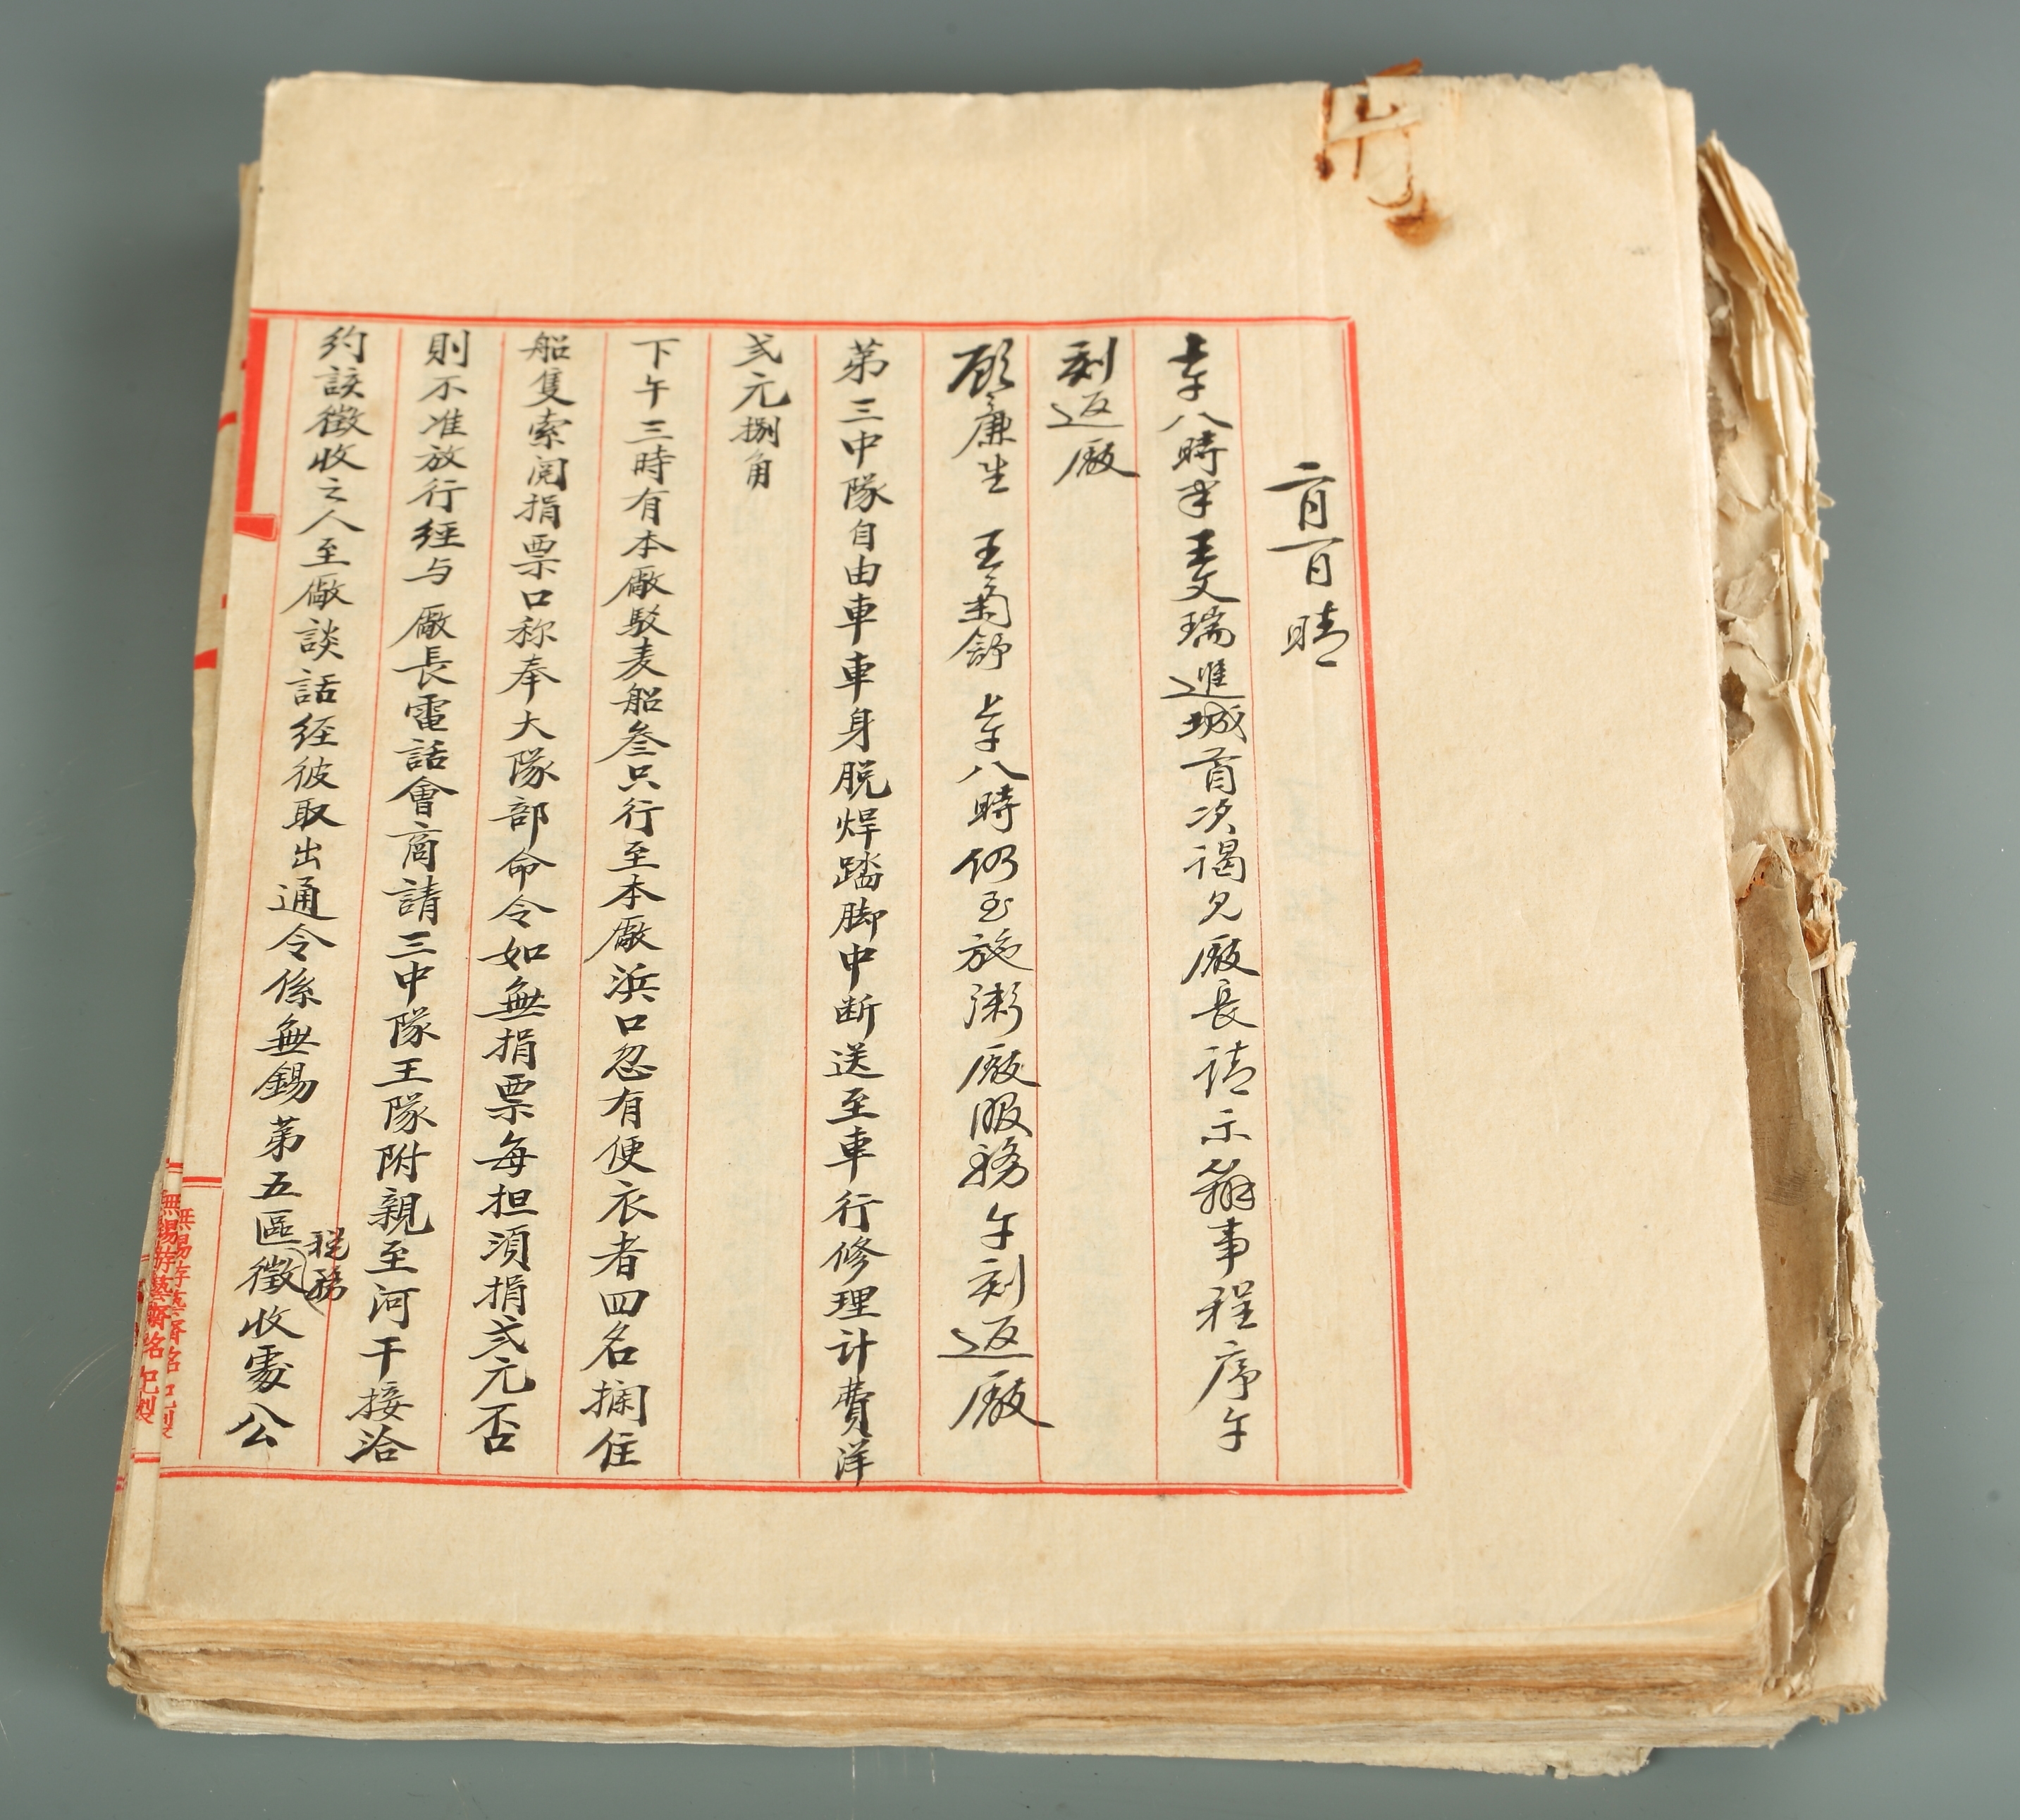 二月一日 晴
上午八時半王文瑞進城首次謁見廠長請示辦事程序午
刻返廠
顧廉生 王菊舒 上午八時仍至施粥廠服務午刻返廠
第三中隊自由車車身脱焊踏脚中断送至車行修理計費洋
弍元捌角
下午三時有本廠駁麦船叁只行至本廠浜口忽有便衣者四名捫住
船隻索閲捐票口称奉大隊部命令如無捐票每担須捐弍元否
則不准放行經与廠長電話會商請三中隊王隊附親至河干接洽
約該徵收之人至廠談話経彼取出通令係無錫第五區徵收處公
税務
無錫游藝齋銘記製